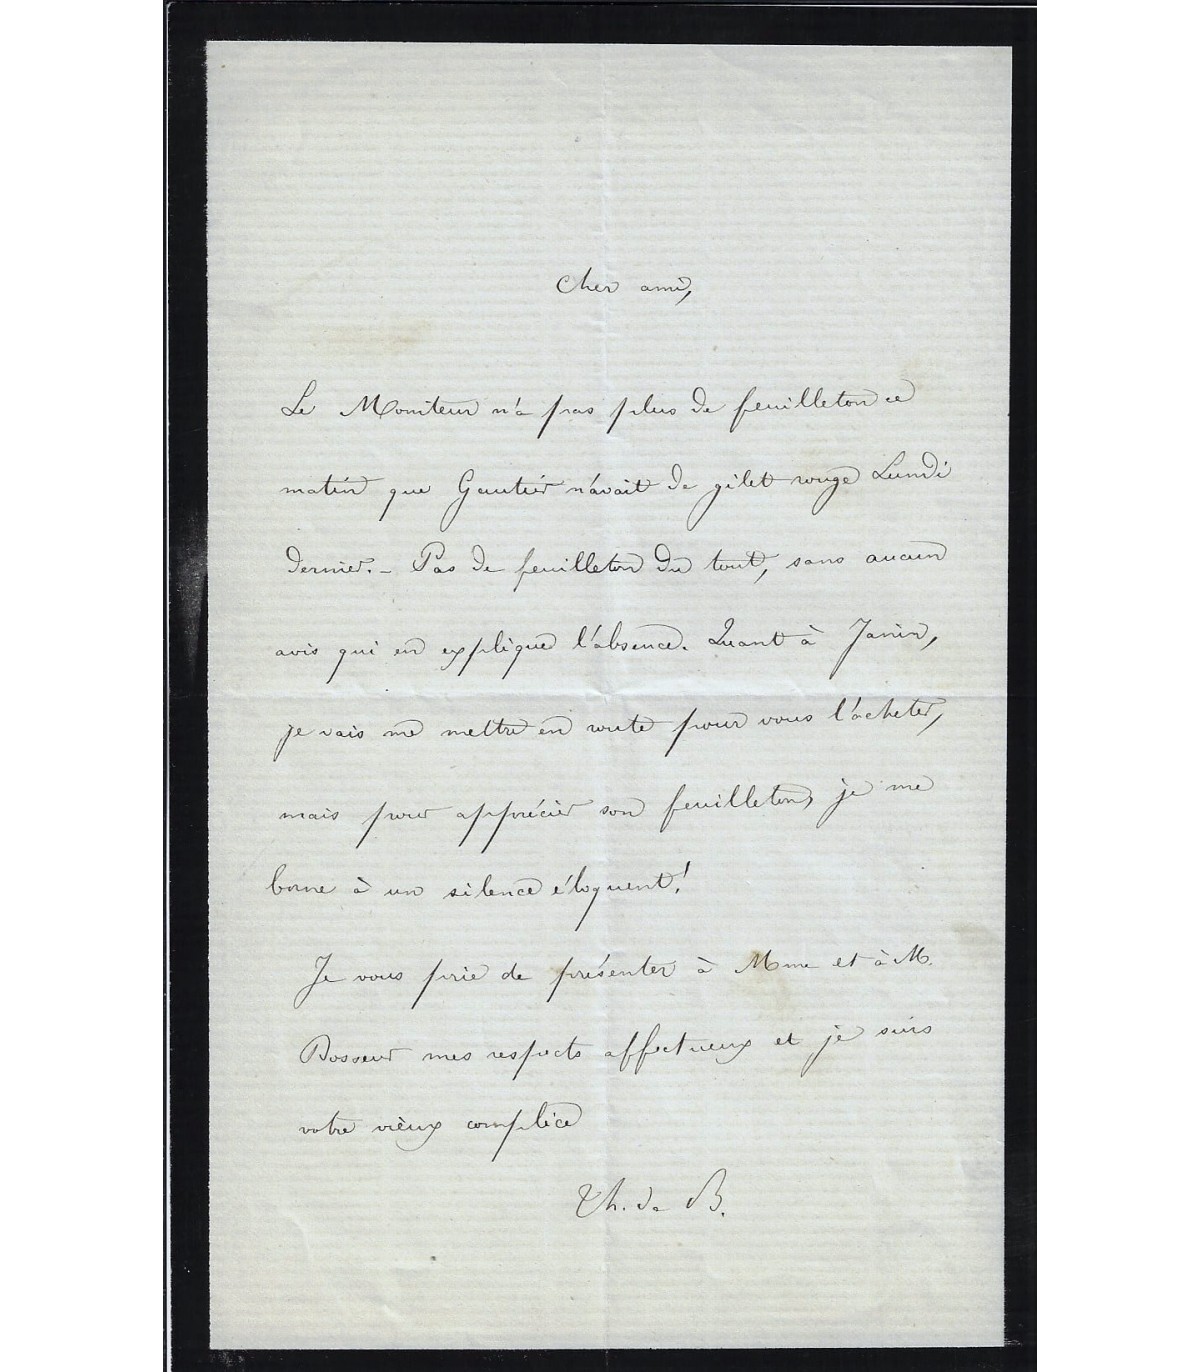 Cher ami,
Le Moniteur n'a pas plus de feuilleton ce
matin que Gautier n'avait de gilet rouge Lundi
dernier. - Pas de feuilleton du tout, sans aucun
avis qui en explique l'absence. Quant à Janin,
je vais me mettre en route pour vous l'acheter,
mais pour apprécier son feuilleton, je me
borne à un silence éloquent!
Je vous prie de présenter à Mme et à M.
Bosseur mes respects affectueux et je suis
votre vieux complice
Th. de B.